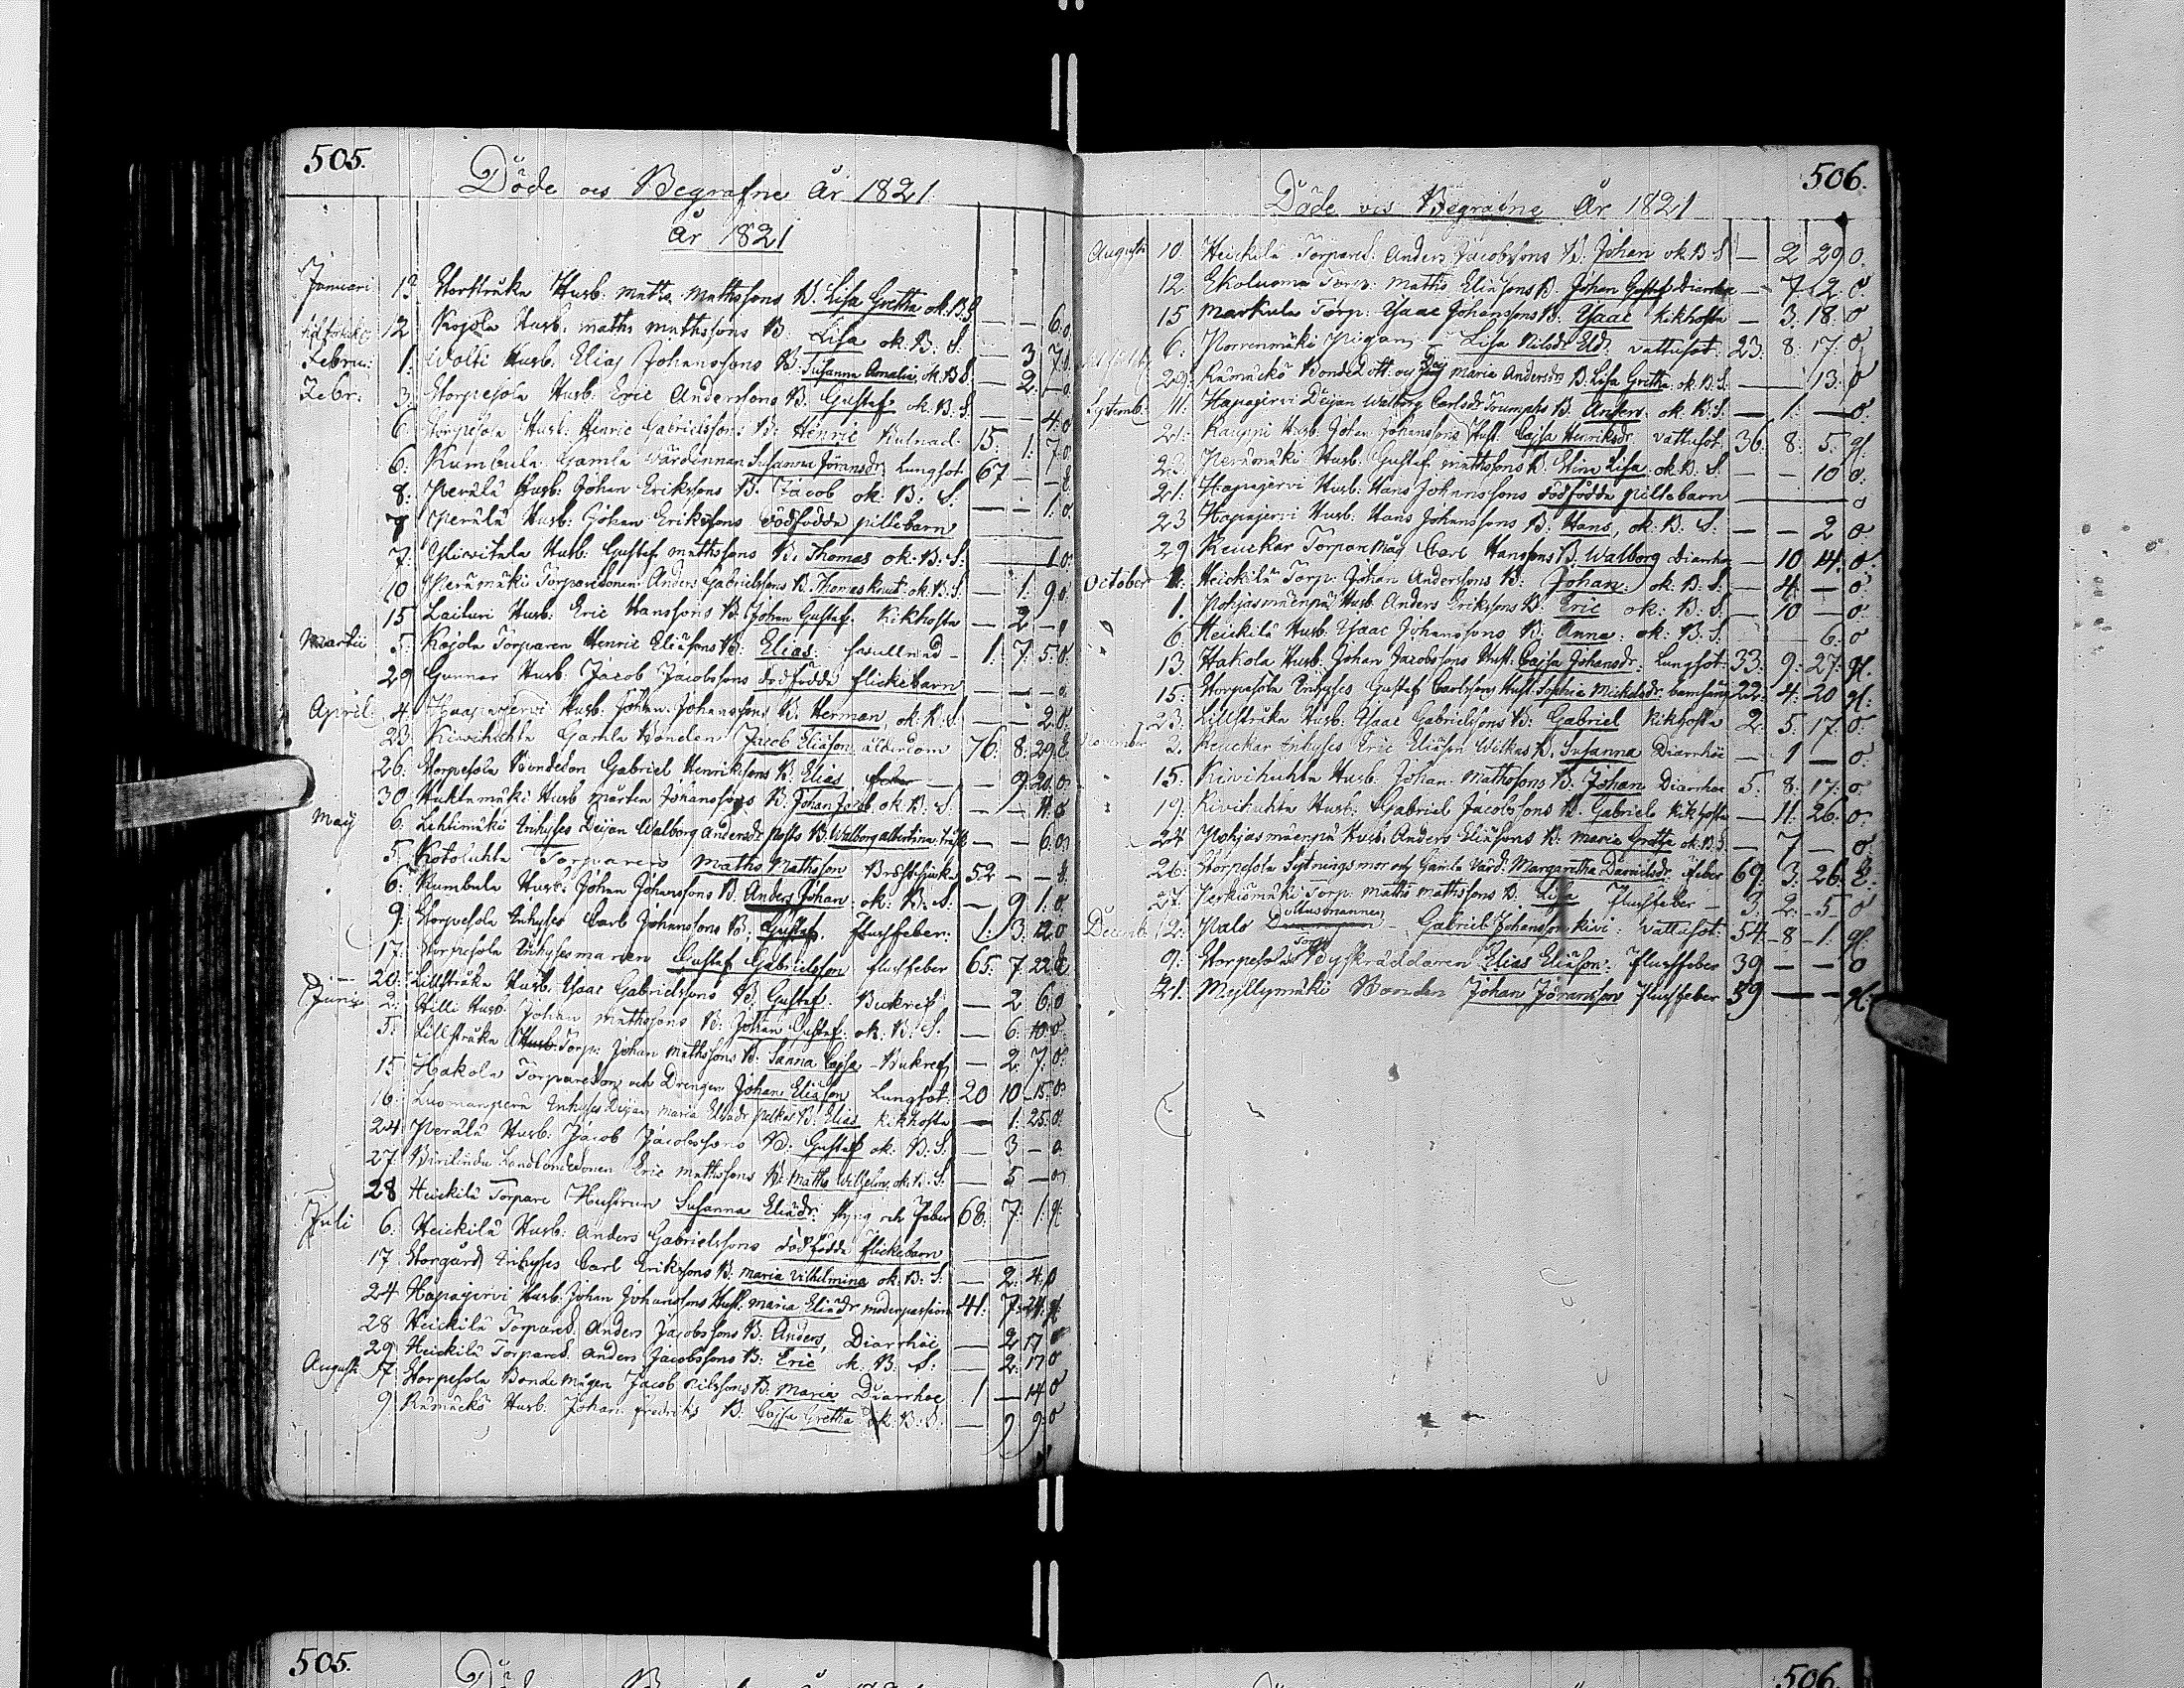 505.
Döde och Begrafne År 1821.
År 1821
Januari 12 Storstråka Husb: Matts Mattssons B. Lisa Gretha ok: B: S. — — 6: o
12 Kojola Husb: Matts Mattssons B. Lisa ok: B: S: — 3 7: o
Februa: 1: Wolti Husb: Elias Johanssons B: Susanna Amalia, ok. B S. — 2: — o
Febr: 3: Storpesola Husb: Eric Anderssons B. Gustaf ok: B: S. — — 4: o
6: Storpesola Husb: Henric Gabrielssons B: Henric 15: 1: 7: o
6: Kumbula Gamla Värdinnan Susanna Jöransdr Lungsot 67 — — E
8: Perälä Husb: Johan Erikssons B. Jacob ok: B: S: — — 1: o
7 Perälä Husb: Johan Erikssons dödfödda piltebarn
7: Yliwitala Husb: Gustaf Mattssons B: Thomas ok: B: S: — — 1 o:
10 Perämäki Torparesonen Anders Gabrielssons B. Thomas Knut ok: B: S: — 1: 9: o
15 Laituri Husb: Eric Hanssons B: Johan Gustaf. Kikhosta — 2 — o
Martii 5: Kojola Torparen Henric Eliäsons B: Elias: 1: 7: 5: o:
29 Gunnar Husb: Jacob Jacobssons dödfödda flickebarn — — — o
April: 4: Haapajervi Husb: Johan Johanssons B. Herman, ok: B: S: — — 2: o:
23 Kiwihuhta Gamla Bonden Jacob Eliäson, ålderdom 76: 8: 29: E
26: Storpesola Bondeson Gabriel Henrikssons B: Elias — 9: 21: o
30 Huhtamäki Husb Mårten Johanssons B. Johan Jacob ok. B: S: — — 11: o
May 6: Lehtimäki Inhyses Deijan Walborg Andersdr B Walborg Albertina — — 6: o
5 Kotoluhta Torparen Matts Mattsson Bröstsjuka 52 — — E
6: Kumbula Husb: Johan Johanssons B. Anders Johan: ok: B: S: — 9 1: o:
9: Storpesola Inhyses Carl Johanssons B: Gustaf. Flussfeber: 1: 3: 12: o
17: Storpesola Inhysesmannen Gustaf Gabrielsson flussfeber 65: 7: 22: E
20: Lillstråka Husb: Ysaac Gabrielssons B: Gustaf. Bukref — 2 6: o
Junii 2: Hilli Husb: Johan Mattssons B: Johan Gustaf: ok: B: S. — 6: 10: o
5: Lillstråka Torp: Johan Mattssons B: Sanna Cajsa - Bukref — 2: 7: o:
15 Hakola Torpareson och Drengen Johan Eliäson Lungsot: 20 10 15: o
16: Luomanperä Inhyses Deijan Maria Eliädr B: Elias Kikhosta — 1: 25: o
24 Perälä Husb: Jacob Jacobssons B: Gustaf ok: B: S: — 3 — o
27: Landbondesonen Eric Mattssons B: Matts Wilhelm, ok: B: S. — 5 — o
28 Heickilä Torpare Hustrun Susanna Eliädr: styng och Feber 68: 7: 1: gf:
Juli 6: Heickilä Husb: Anders Gabrielssons dödfödda flickebarn
17 Storgård Inhyses Carl Erikssons B: Maria Vilhelmina ok: B: S: — 2: 4: o
24 Hapajervi Husb: Johan Johanssons Hust. Maria Eliädr moderpassion 41: 7: 24: gf:
28 Heickilä Torpares. Anders Jacobssons B: Anders, Diarrhöe — 2 17 o
29 Heickilä Torpares. Anders Jacobssons B: Eric ok: B: S: — 2: 17 o
Augusti 7: Storpesola Bonde Mågen Jacob Nilssons B: Maria Diarrhoe 1 — 14 o
9 Rämäckö Husb: Johan Fredriks B: Cajsa Gretha ok: B: S: — 9 9: o
506.
Döde och Begrafne År 1821
Augusti 10. Heickilä Torpares: Anders Jacobssons B: Johan ok: B: S — 2 29 o.
12. Ekoluoma Torp: Matts Eliäsons B. Johan Gustaf Diarrhoe — 7 12 o.
15 Markula Torp: Ysaac Johanssons B. Ysaac Kikhosta — 3: 18: o
6: Porrenmäki Pigan Lisa Nilsdr vattusot: 23: 8: 17: o
29: Rämäckö Bonded ott: och Maria Andersdr B: Lisa Gretha: ok: B: S: — — 13: o
Septemb: 11: Hapajervi Deijan Walborg Carlsdr Trumphs B: Anders. ok: B: S. — 1: — o:
21: Kauppi Husb: Johan Johanssons Hust: Cajsa Henriksdr. vattusot: 36: 8: 5: gf.
23: Perämäki Husb: Gustaf Mattssons B. Stina Lisa ok: B. S. — — 10 o:
21: Hapajervi Husb: Hans Johanssons dödfödda piltebarn — o
23 Hapajervi Husb: Hans Johanssons B: Hans, ok: B. S: — — 2 o
29 Keuckar Torpan Måg Carl Hanssons B: Walborg Diarrhoe — 10 14: o:
October 1: Heickilä Torp: Johan Anderssons B: Johan: ok: B: S: — 4: — o:
1. Pohjasmäenpä Husb. Anders Erikssons B. Eric ok: B: S. — 10 — o
6 Heickilä Husb: Ysaac Johanssons B. Anna: ok: B: S: — — 6: o
13. Hakola Husb: Johan Jacobssons Hust: Cajsa Johansdr: Lungsot: 33: 9: 27: gf.
15: Storpesola Inhyses Gustaf Carlssons Hust: Sophia Mickelsdr. barnsäng 22: 4: 20 gf:
23: Lillstråka Husb: Ysaac Gabrielssons B: Gabriel Kikhosta 2: 5: 17: o:
November 3. Keuckar Inhyses Eric Eliäson Wilkas B: Susanna Diarrhöe — 1 — o:
15: Kivihuhta Husb: Johan Mattssons B: Johan Diarrhoe 5: 8: 17: o
19: Kivihuhta Husb: Gabriel Jacobssons B. Gabriel Kikhosta — 11: 26: o:
24 Pohjasmäenpä Husb: Anders Eliäsons B: Maria Gretha ok: B: S — 7 — o:
26: Storpesola Sytningsmor och Gamla Värd: Margaretha Danielsdr. Feber 69: 3: 26: E:
27: Torp. Matts Mattssons B. Lisa Flussfeber — 3: 2: 5 o
Decemb: 2: Palo Husbonannen Gabriel Johansson Kivi: vattusot: 54 8 1: gf:
9: Storpesola Torp Byskräddaren Elias Eliäson: Flussfeber 39 — — o
21: Myllymäki Bonden Johan Jöransson Flussfeber 59 — — gf:
505.
506.